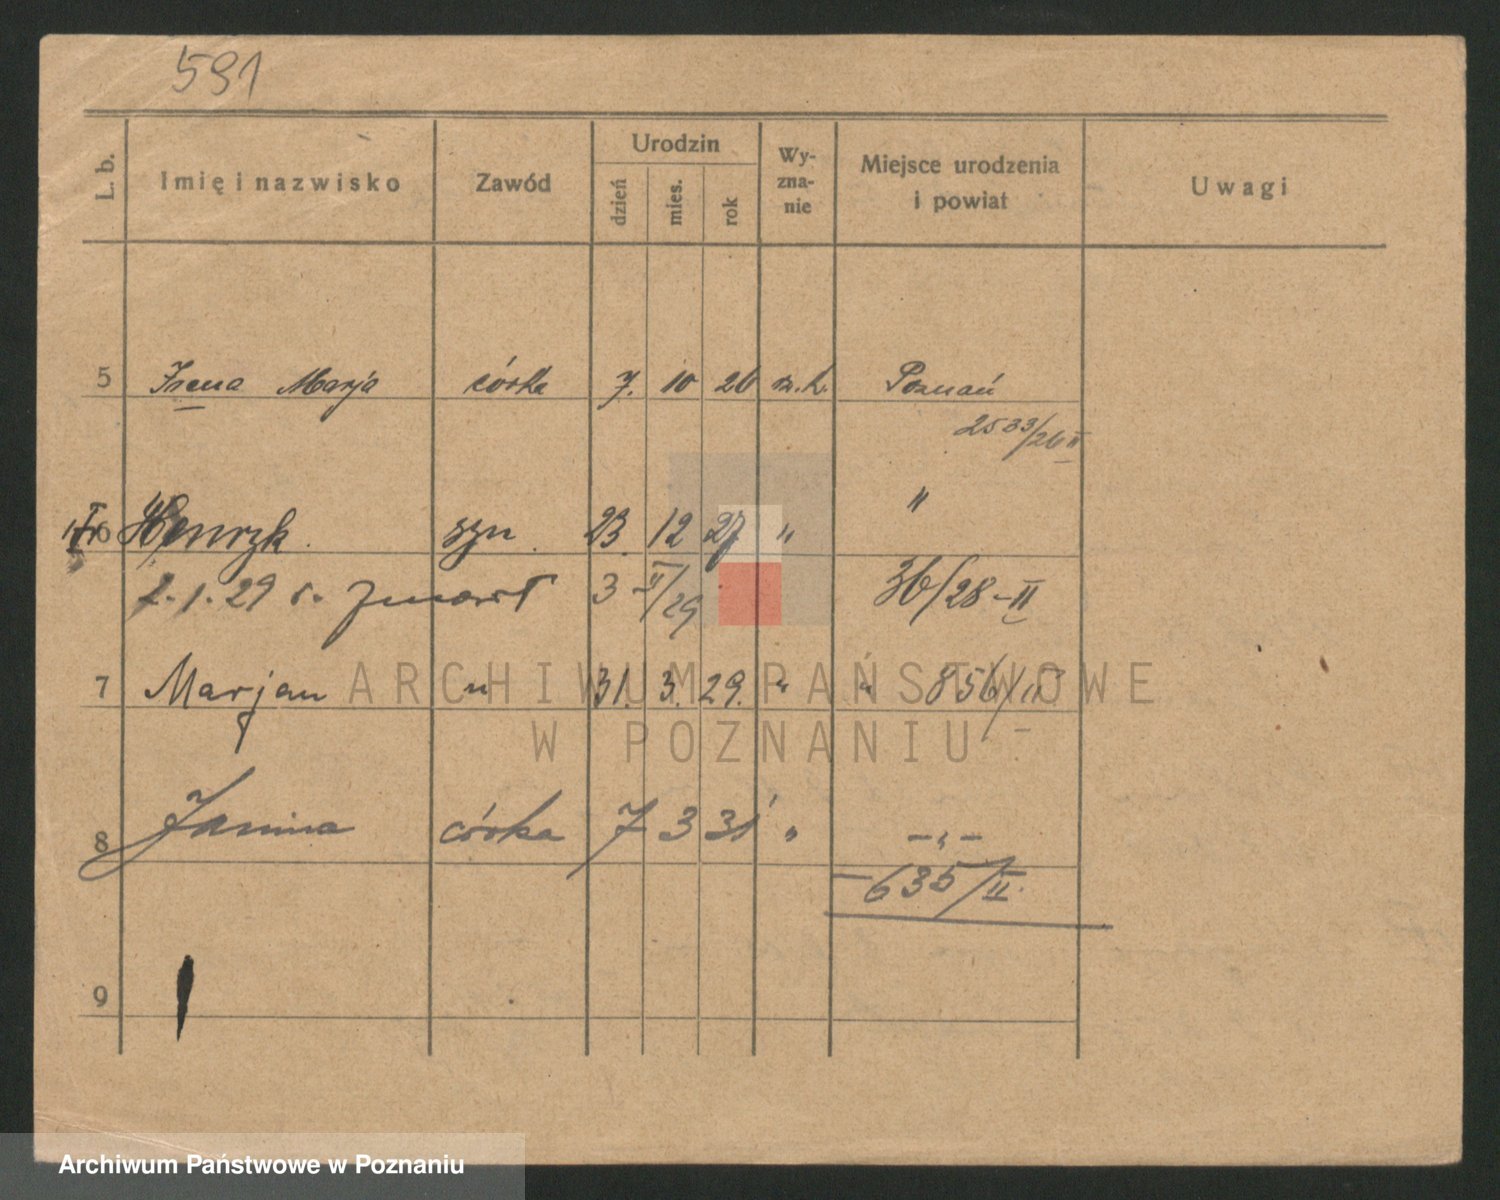 591
L. b.
Imię i nazwisko
Zawód
Urodzin
dzień
mies.
rok
Wy-
zna-
nie
Miejsce urodzenia
i powiat
Uwagi
5 Irena Marja córka 7. 10 26 rz. k. Poznań
2533/26 II
6 Henryk syn. 23. 12 27 " "
2. 1. 29 r. zmarł 3 - II/29 36/28 - II
7 Marjan " 31. 3. 29. " " 856/II
8 Janina córka 7 3 31 " - " -
- 635/II.
9
ARCHIWUM PAŃSTWOWE
W POZNANIU
Archiwum Państwowe w Poznaniu